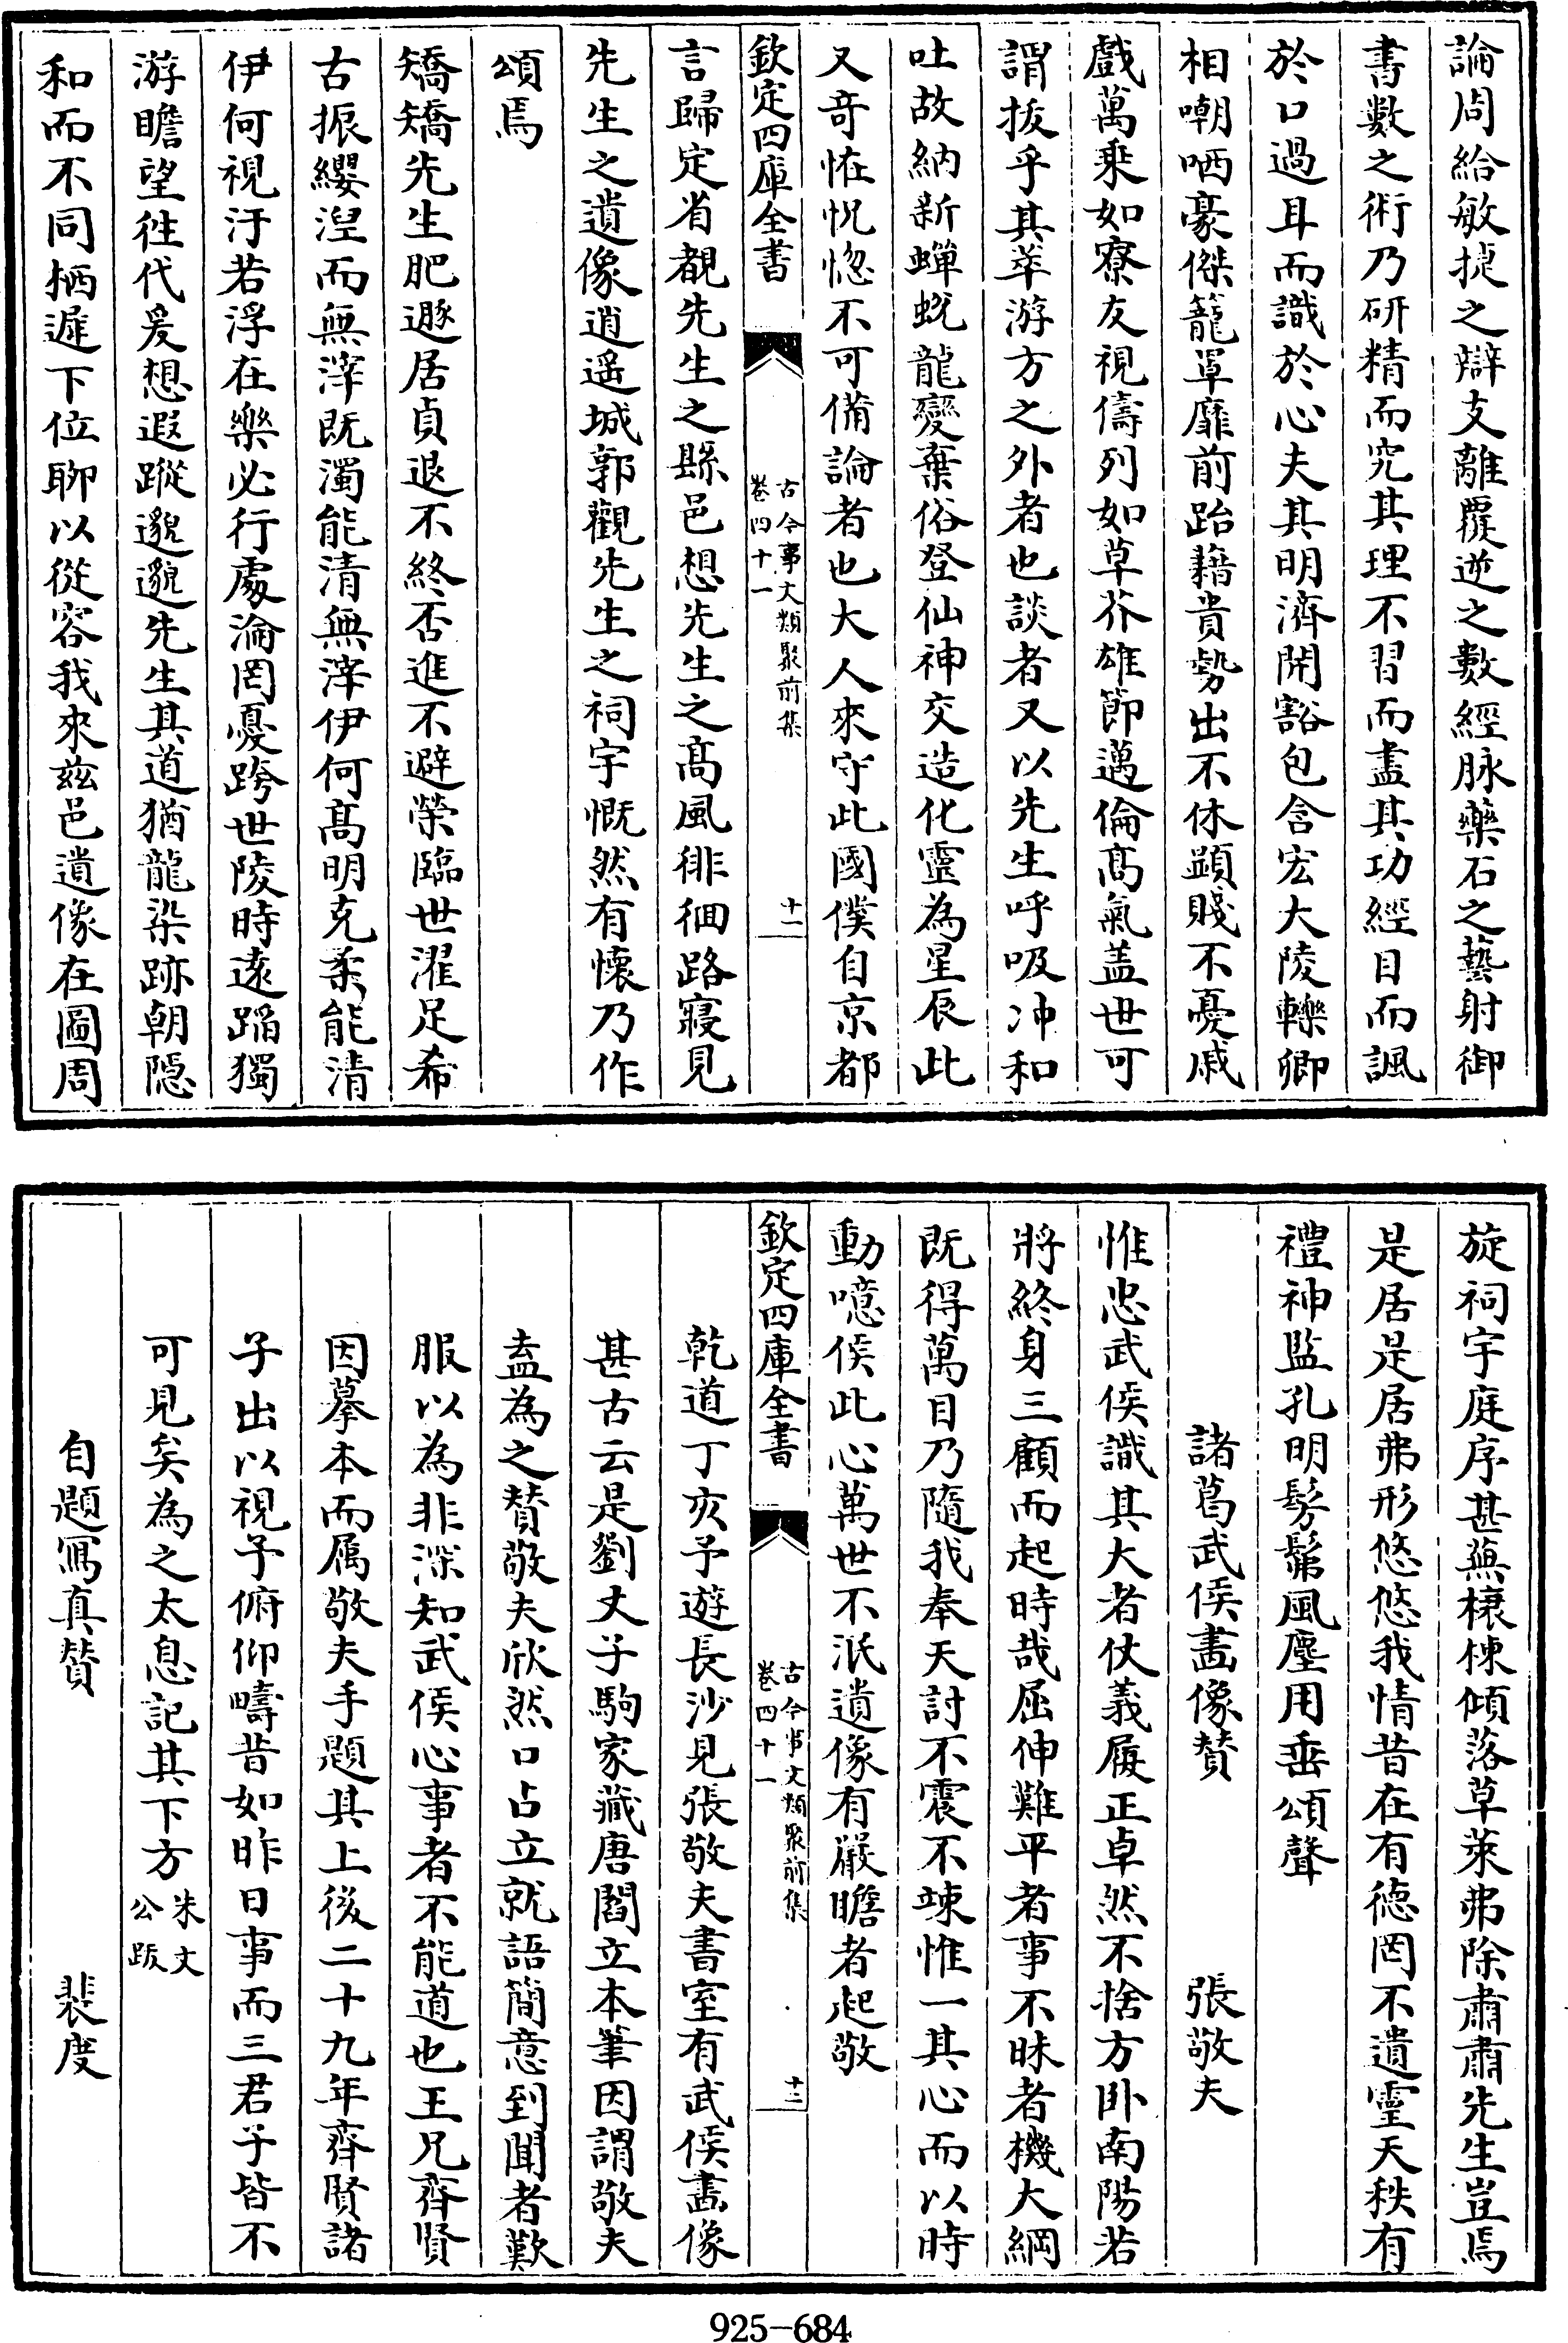 論周給敏捷之辯支離覆逆之數經脉藥石之藝射御
書數之術乃研精而究其理不習而盡其功經目而諷
於口過耳而識於心夫其明濟開豁包含宏大陵轢卿
相嘲哂豪傑籠罩靡前跆藉貴勢出不休顯賤不憂戚
戲萬乘如寮友視儔列如草芥雄節邁倫髙氣盖世可
謂拔乎其萃游方之外者也談者又以先生呼吸冲和
吐故納新蟬蛻龍變棄俗登仙神交造化靈為星辰此
又竒怪怳惚不可備論者也大人來守此國僕自京都
欽定四庫全書
古今事文類聚前集
卷四十一
十一
言歸定省覩先生之縣邑想先生之髙風徘徊路寢見
先生之遺像逍遥城郭觀先生之祠宇慨然有懷乃作
頌焉
矯矯先生肥遯居貞退不終否進不避榮臨世濯足希
古振纓涅而無滓既濁能清無滓伊何髙明克柔能清
伊何視汙若浮在樂必行處淪罔憂跨世陵時逺蹈獨
游瞻望往代爰想遐蹤邈邈先生其道猶龍染跡朝隠
和而不同栖遲下位聊以從容我來兹邑遺像在圖周
旋祠宇庭序甚蕪榱棟傾落草萊弗除肅肅先生豈焉
是居是居弗形悠悠我情昔在有德罔不遺靈天秩有
禮神監孔明髣髴風塵用垂頌聲
諸葛武侯畫像賛 張敬夫
惟忠武侯識其大者仗義履正卓然不捨方卧南陽若
將終身三顧而起時哉屈伸難平者事不昧者機大綱
既得萬目乃隨我奉天討不震不竦惟一其心而以時
動噫侯此心萬世不泯遺像有嚴瞻者起敬
欽定四庫全書
古今事文類聚前集
卷四十一
十二
乾道丁亥予遊長沙見張敬夫書室有武侯畫像
甚古云是劉丈子駒家藏唐閻立本筆因謂敬夫
盍為之賛敬夫欣然口占立就語簡意到聞者歎
服以為非深知武侯心事者不能道也王兄齊賢
因摹本而属敬夫手題其上後二十九年齊賢諸
子出以視予俯仰疇昔如昨日事而三君子皆不
可見矣為之太息記其下方朱文公跋
自題冩真賛 裴度
925-684